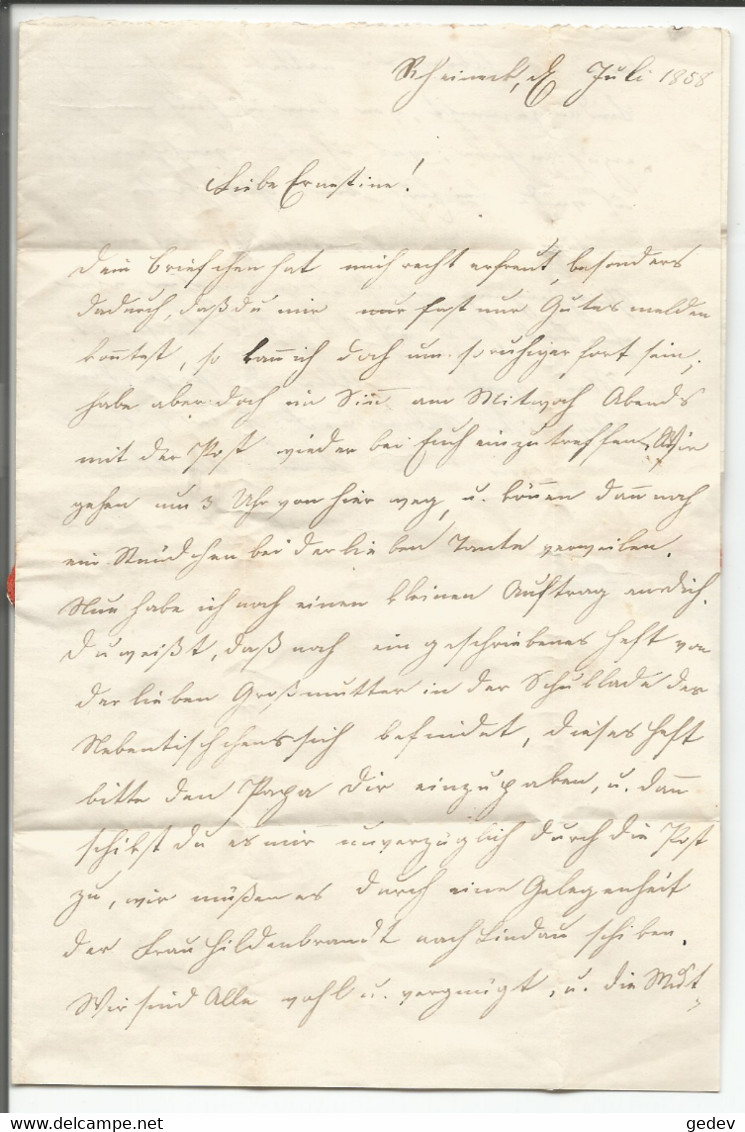 Rheineck, d. Juli 1858
Liebe Ernestine!
Dein Briefchen hat mich recht erfreut, besonders
dadurch, daß du mir fast nur Gutes melden
konntest, so kann ich doch um so ruhiger fort sein;
habe aber doch im Sinn am Mitwoch Abends
mit der Post wieder bei Euch einzutreffen. Wir
gehen um 3 Uhr von hier weg, u. können dann noch
ein Stündchen bei der lieben Tante verweilen.
Nun habe ich noch einen kleinen Auftrag an dich.
Du weißt, daß noch ein geschriebenes Heft von
der lieben Großmutter in der Schublade des
Nebentischchens sich befindet, dieses Heft
bitte den Papa dir einzupaken, u. dann
schikst du es mir unverzüglich durch die Post
zu, wir müßen es durch eine Gelegenheit
der Frau Hildenbrandt nach Lindau schiken.
Wir sind Alle wohl u. vergnügt, u. die Mut-
www.delcampe.net
gedev